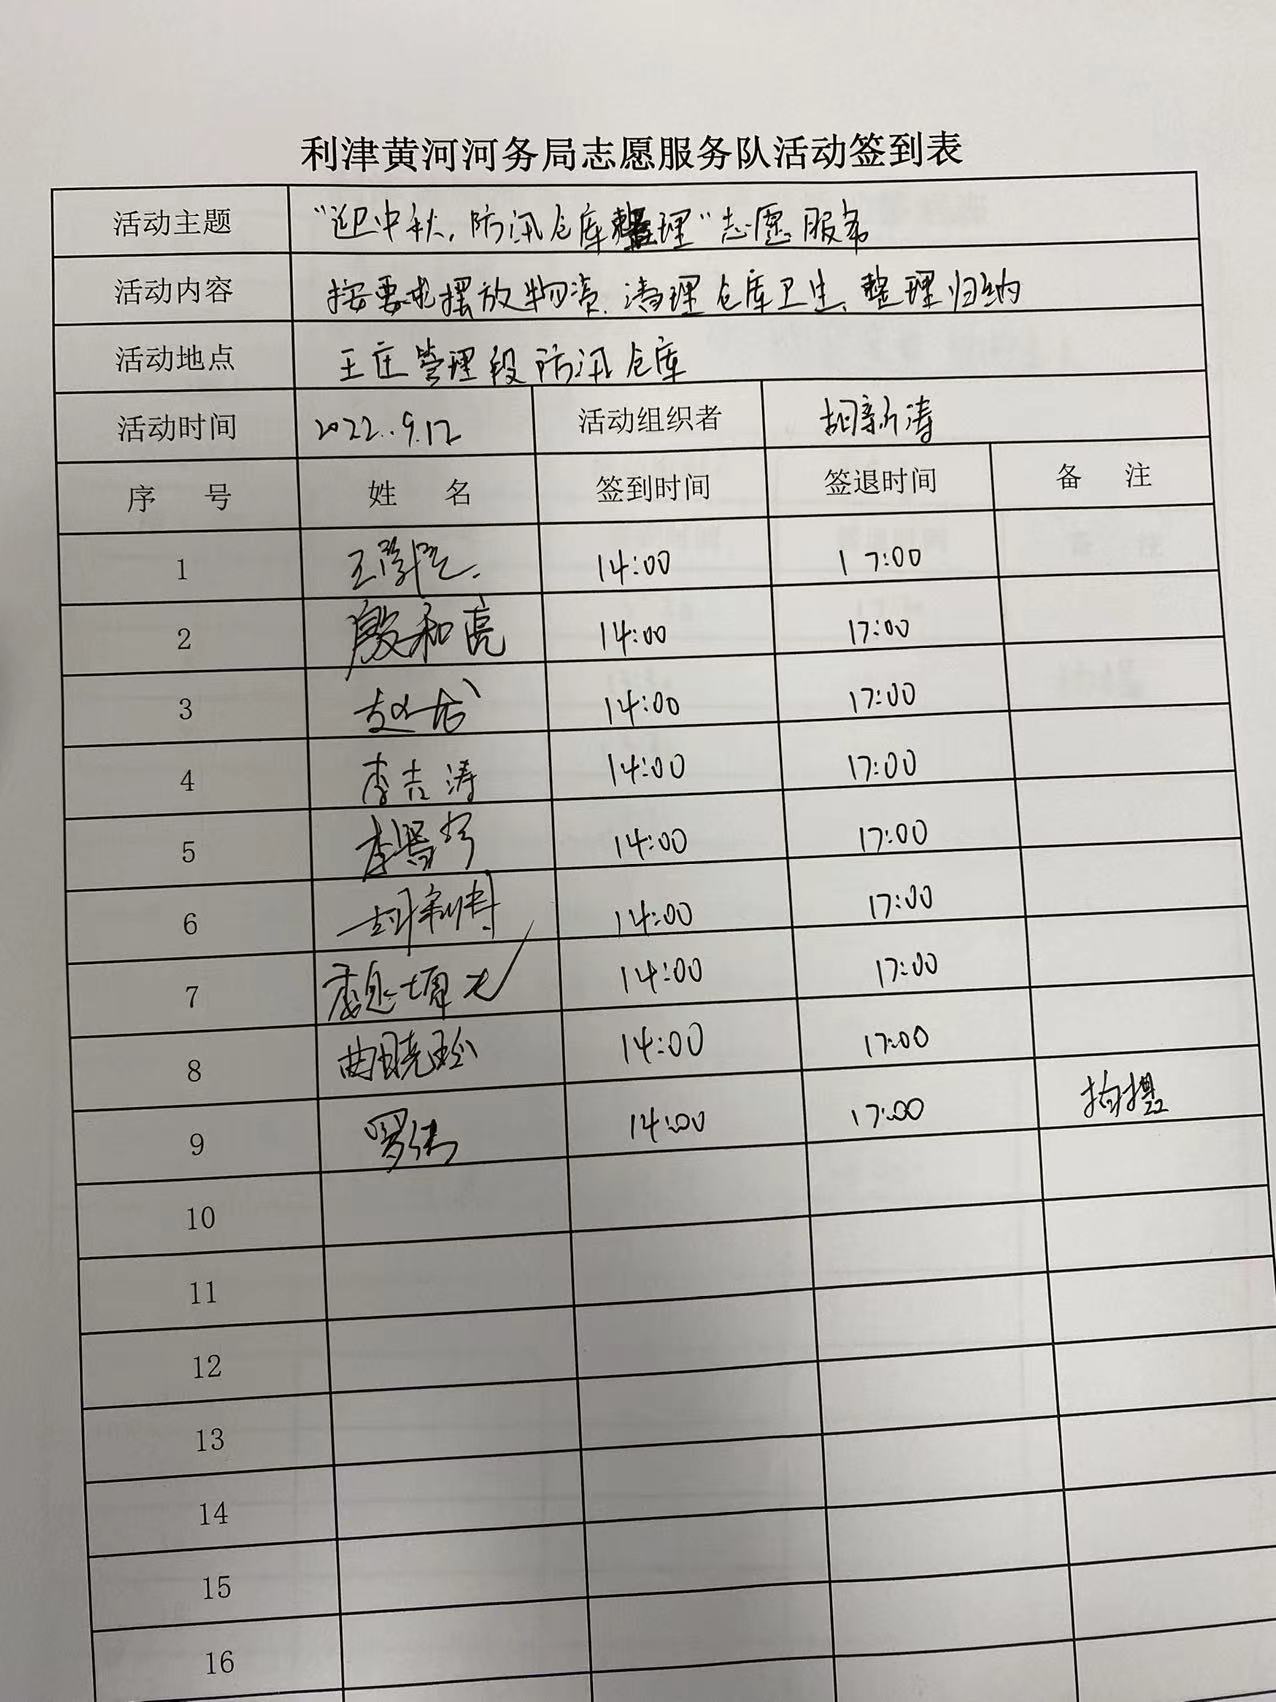 利津黄河河务局志愿服务队活动签到表
活动主题 “迎中秋,防汛仓库整理”志愿服务
活动内容 按要求摆放物资、清理仓库卫生、整理归纳
活动地点 王庄管理段防汛仓库
活动时间 2022.9.12 活动组织者 胡新涛
序号 姓名 签到时间 签退时间 备注
1 14:00 17:00
2 殷和亮 14:00 17:00
3 14:00 17:00
4 李吉涛 14:00 17:00
5 14:00 17:00
6 14:00 17:00
7 14:00 17:00
8 14:00 17:00
9 罗伟 14:00 17:00 拍摄
10
11
12
13
14
15
16